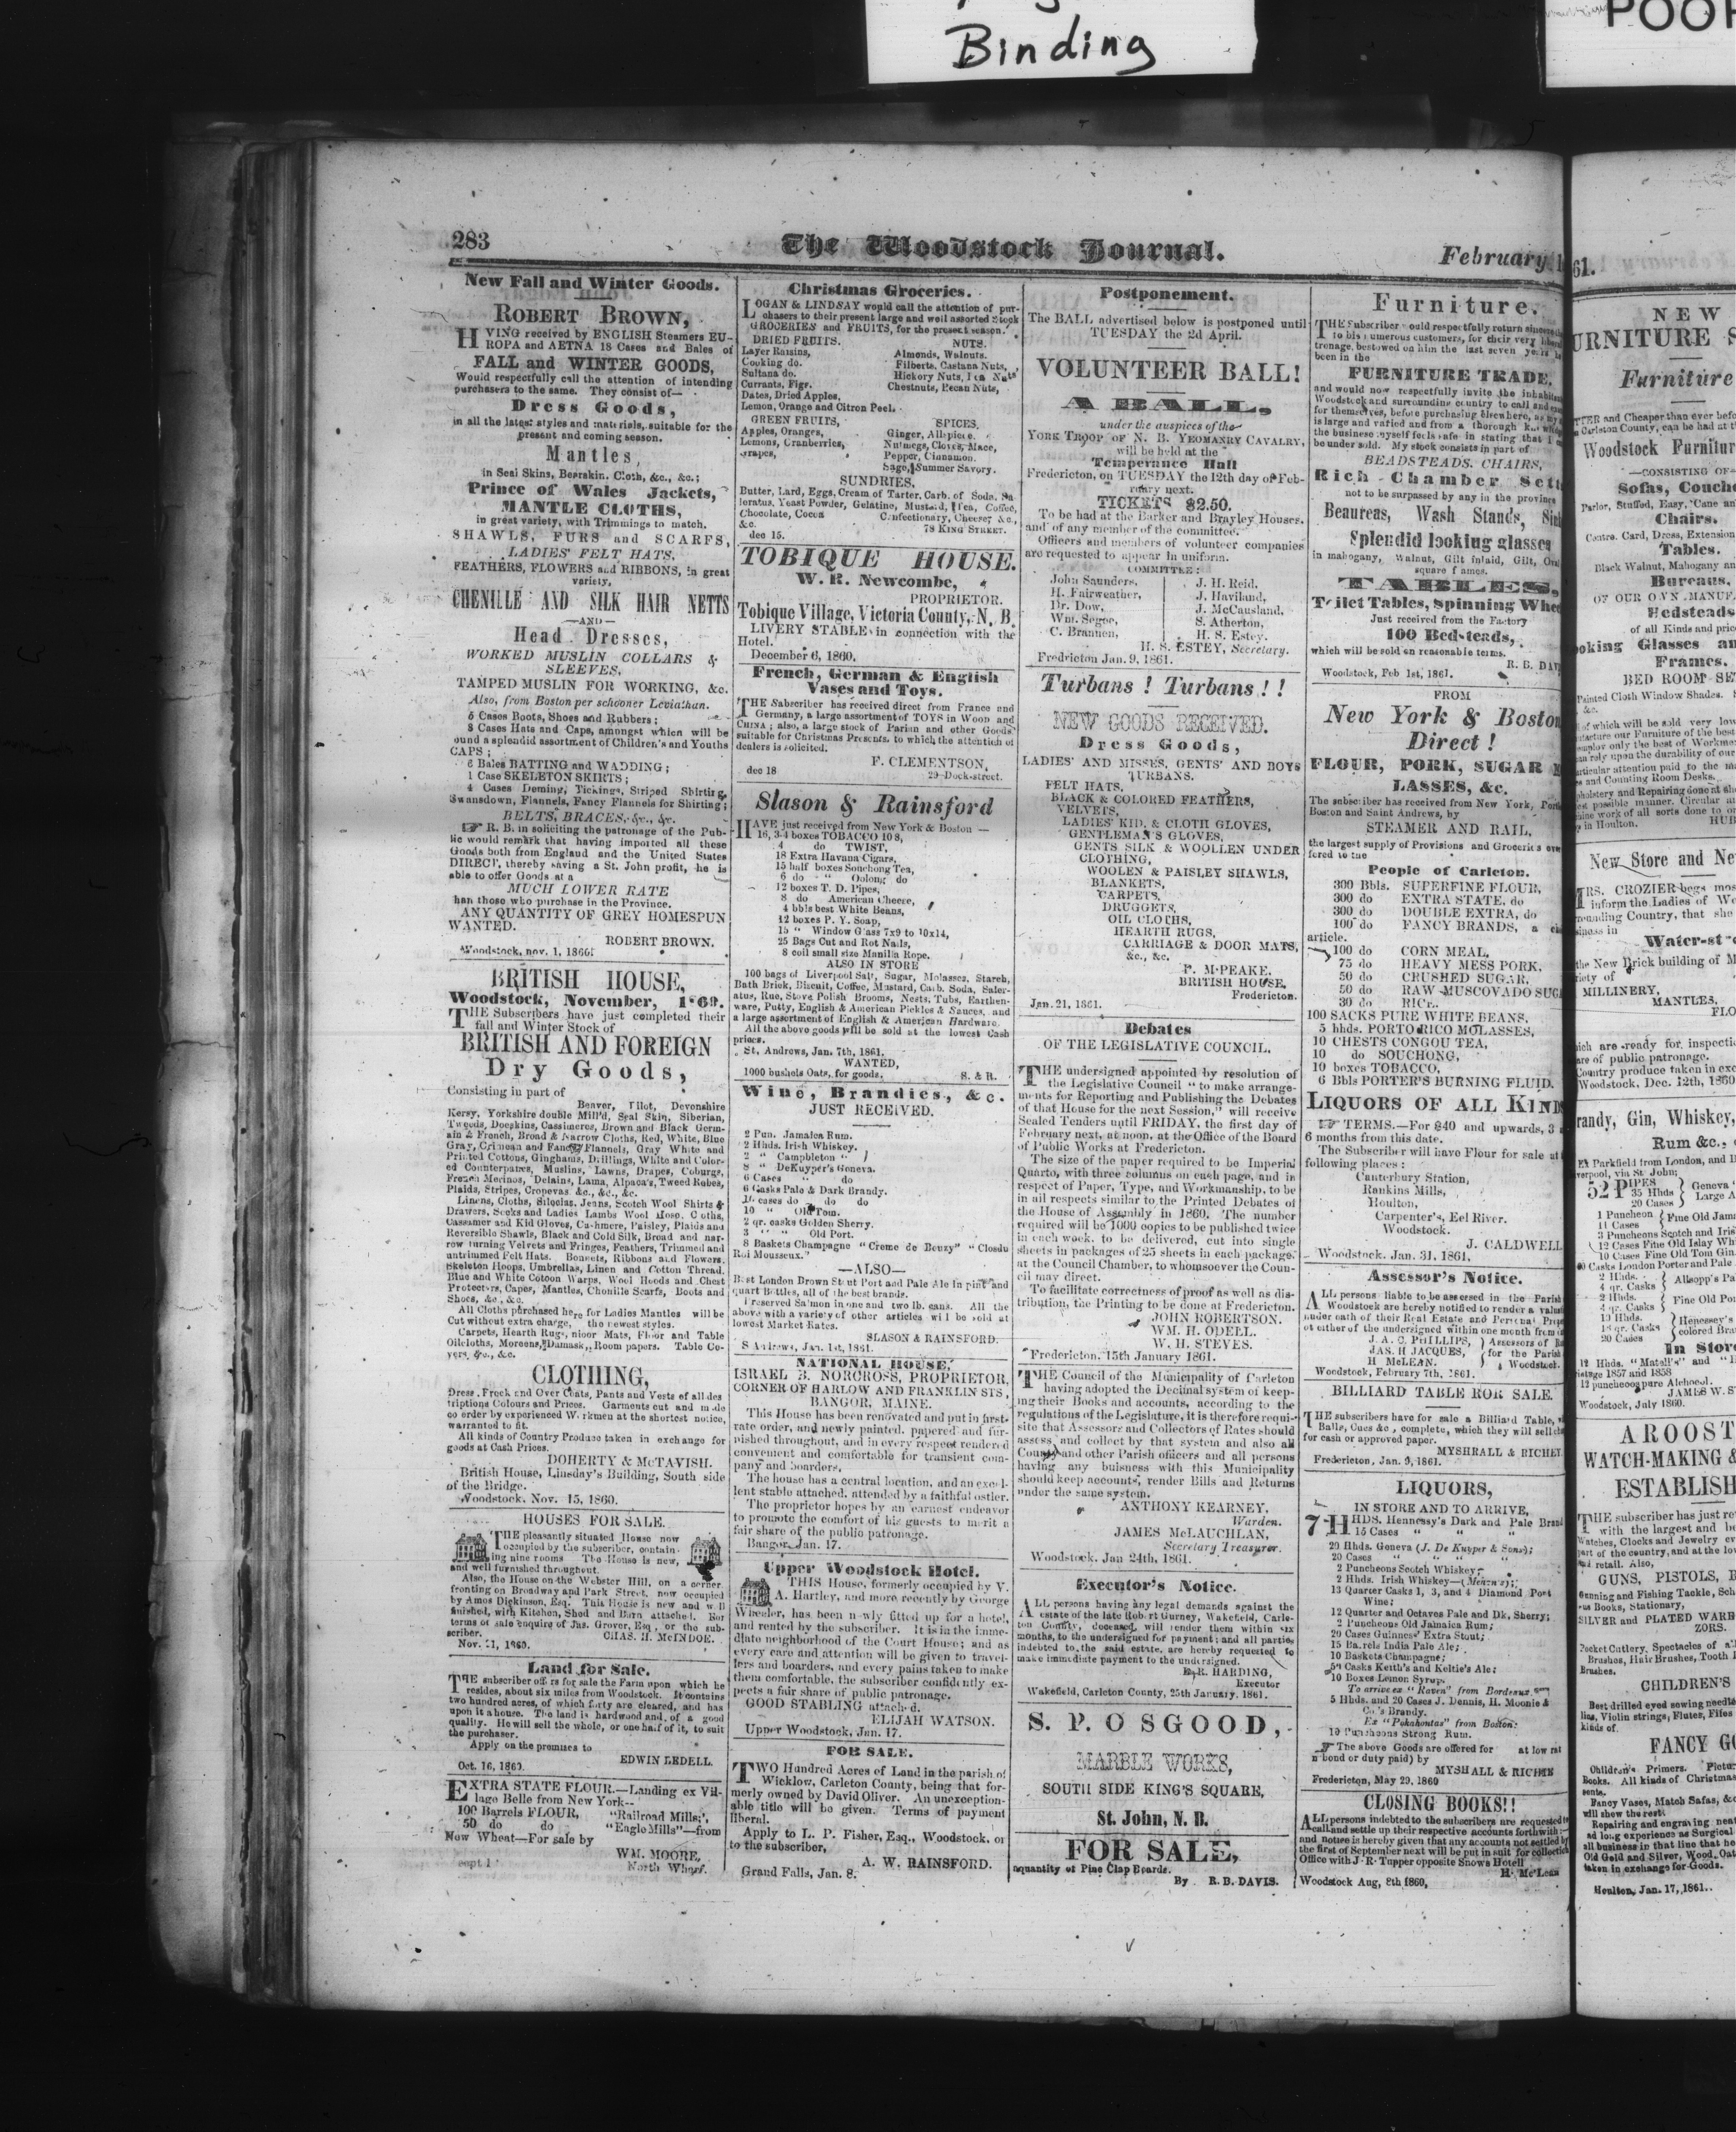 Binding
POOR
283
The Woodstock Journal.
February 1
New Fall and Winter Goods.
ROBERT BROWN,
HVING received by ENGLISH Steamers EU-
ROPA and AETNA 18 Cases and Bales of
FALL and WINTER GOODS,
Would respectfully call the attention of intending
purchasers to the same. They consist of—
Dress Goods,
in all the latest styles and materials, suitable for the
present and coming season.
Mantles
in Seal Skins, Bearskin, Cloth, &c., &c.;
Prince of Wales Jackets,
MANTLE CLOTHS,
in great variety, with Trimmings to match.
SHAWLS, FURS and SCARFS,
LADIES' FELT HATS,
FEATHERS, FLOWERS and RIBBONS, in great
variety,
CHENILLE AND SILK HAIR NETTS
—AND—
Head Dresses,
WORKED MUSLIN COLLARS &
SLEEVES,
TAMPED MUSLIN FOR WORKING, &c.
Also, from Boston per schooner Leviathan.
6 Cases Boots, Shoes and Rubbers;
8 Cases Hats and Caps, amongst which will be
ound a splendid assortment of Children's and Youths
CAPS;
6 Bales BATTING and WADDING;
1 Case SKELETON SKIRTS;
4 Cases Deming, Tickings, Striped Shirting,
Swansdown, Flannels, Fancy Flannels for Shirting;
BELTS, BRACES, &c., &c.
☞ R. B. in soliciting the patronage of the Pub-
lic would remark that having imported all these
Goods both from England and the United States
DIRECT, thereby saving a St. John profit, he is
able to offer Goods at a
MUCH LOWER RATE
han those who purchase in the Province.
ANY QUANTITY OF GREY HOMESPUN
WANTED.
ROBERT BROWN.
Woodstock, nov. 1, 1860.
BRITISH HOUSE,
Woodstock, November, 1860.
THE Subscribers have just completed their
fall and Winter Stock of
BRITISH AND FOREIGN
Dry Goods,
Consisting in part of
Beaver, Pilot, Devonshire
Kersy, Yorkshire double Mill'd, Seal Skin, Siberian,
Tweeds, Doeskins, Cassimeres, Brown and Black Germ-
ain & French, Broad & Narrow Cloths, Red, White, Blue
Gray, Crimean and Fancy Flannels, Gray White and
Printed Cottons, Ginghams, Drillings, White and Color-
ed Counterpanes, Muslins, Lawns, Drapes, Coburgs,
French Merinos, Delains, Lama, Alpaca's, Tweed Robes,
Plaids, Stripes, Cropevas &c., &c., &c.
Linens, Cloths, Silecias, Jeans, Scotch Wool Shirts &
Drawers, Socks and Ladies Lambs Wool Hose, Cloths,
Cassamer and Kid Gloves, Cashmere, Paisley, Plaids and
Reversible Shawls, Black and Cold Silk, Broad and nar-
row turning Velvets and Fringes, Feathers, Trimmed and
untrimmed Felt Hats. Bonnets, Ribbons and Flowers,
Skeleton Hoops, Umbrellas, Linen and Cotton Thread,
Blue and White Cotoon Warps, Wool Hoods and Chest
Protectors, Capes, Mantles, Chenille Scarfs, Boots and
Shoes, &c., &c.
All Cloths purchased here for Ladies Mantles will be
Cut without extra charge, the newest styles.
Carpets, Hearth Rugs, nioor Mats, Floor and Table
Oilcloths, Moreens, Damask, Room papers. Table Co-
vers, &c., &c.
CLOTHING,
Dress, Frock and Over Coats, Pants and Vests of all des
triptions Colours and Prices. Garments cut and made
to order by experienced Workmen at the shortest notice,
warranted to fit.
All kinds of Country Produce taken in exchange for
goods at Cash Prices.
DOHERTY & McTAVISH.
British House, Linsday's Building, South side
of the Bridge.
Woodstock, Nov. 15, 1860.
HOUSES FOR SALE.
THE pleasantly situated House now
occupied by the subscriber, contain-
ing nine rooms The House is new,
and well furnished throughout.
Also, the House on the Webster Hill, on a corner
fronting on Broadway and Park Street, now occupied
by Amos Dickinson, Esq. This House is new and well
finished, with Kitchen, Shed and Barn attached. For
terms of sale enquire of Jas. Grover, Esq, or the sub-
scriber.
CHAS. H. McINDOE.
Nov. 21, 1860.
Land for Sale.
THE subscriber offers for sale the Farm upon which he
resides, about six miles from Woodstock. It contains
two hundred acres, of which forty are cleared, and has
upon it a house. The land is hardwood and of a good
quality. He will sell the whole, or one half of it, to suit
the purchaser.
Apply on the premises to
EDWIN BEDELL.
Oct. 16, 1860.
EXTRA STATE FLOUR.—Landing ex Vil-
lage Belle from New York--
100 Barrels FLOUR, "Railroad Mills;"
50 do do "Eagle Mills"—from
New Wheat—For sale by
WM. MOORE,
North Wharf.
sept 1
Christmas Groceries.
LOGAN & LINDSAY would call the attention of pur-
chasers to their present large and well assorted Stock
GROCERIES and FRUITS, for the present season.
DRIED FRUITS. NUTS.
Layer Raisins, Almonds, Walnuts.
Cooking do. Filberts, Castana Nuts,
Sultana do. Hickory Nuts, Pea Nuts'
Currants, Figs. Chestnuts, Pecan Nuts,
Dates, Dried Apples,
Lemon, Orange and Citron Peel.
GREEN FRUITS, SPICES.
Apples, Oranges, Ginger, Allspice.
Lemons, Cranberries, Nutmegs, Cloves, Mace,
Grapes, Pepper, Cinnamon.
Sage, Summer Savory.
SUNDRIES,
Butter, Lard, Eggs, Cream of Tarter, Carb. of Soda, Sa
leratus, Yeast Powder, Gelatine, Mustard, Tea, Coffee,
Chocolate, Cocoa Confectionary, Cheese, &c.,
&c. 78 KING STREET.
dec 15.
TOBIQUE HOUSE.
W. R. Newcombe,
PROPRIETOR.
Tobique Village, Victoria County, N. B.
LIVERY STABLE in connection with the
Hotel.
December 6, 1860.
French, German & English
Vases and Toys.
THE Subscriber has received direct from France and
Germany, a large assortment of TOYS in WOOD and
CHINA; also, a large stock of Parian and other Goods
suitable for Christmas Presents, to which the attention of
dealers is solicited.
F. CLEMENTSON,
dec 18 29 Dock-street.
Slason & Rainsford
HAVE just received from New York & Boston —
16, 3-4 boxes TOBACCO 10 8,
4 do TWIST,
18 Extra Havana Cigars,
15 half boxes Souchong Tea,
6 do " Oolong do
12 boxes T. D. Pipes,
8 do American Cheese,
4 bbls best White Beans,
12 boxes P. Y. Soap,
15 " Window Glass 7x9 to 10x14,
25 Bags Cut and Rot Nails,
8 coil small size Manilla Rope.
ALSO IN STORE
100 bags of Liverpool Salt, Sugar, Molasses, Starch,
Bath Brick, Biscuit, Coffee, Mustard, Carb. Soda, Saler-
atus, Rue, Stove Polish Brooms, Nests, Tubs, Earthen-
ware, Putty, English & American Pickles & Sauces, and
a large assortment of English & American Hardware.
All the above goods will be sold at the lowest Cash
prices.
St. Andrews, Jan. 7th, 1861.
WANTED,
1000 bushels Oats, for goods. S. & R.
Wine, Brandies, &c.
JUST RECEIVED.
2 Pun. Jamaica Rum.
2 Hhds. Irish Whiskey.
2 " Campbleton "
8 " DeKuyper's Geneva.
6 Cases " do
6 Casks Pale & Dark Brandy.
16 cases do do do
10 " Old Tom.
2 qr. casks Golden Sherry.
3 " " Old Port.
8 Baskets Champagne "Creme de Bouzy" "Closdu
Roi Mousseux."
—ALSO—
Best London Brown Stout Port and Pale Ale in pint and
quart Bottles, all of the best brands.
Preserved Salmon in one and two lb. cans. All the
above with a variety of other articles will be sold at
lowest Market Rates.
SLASON & RAINSFORD.
S Andrews, Jan. 1st, 1861.
NATIONAL HOUSE,
ISRAEL B. NORCROSS, PROPRIETOR,
CORNER OF HARLOW AND FRANKLIN STS,
BANGOR, MAINE.
This House has been renovated and put in first-
rate order, and newly painted, papered and fur-
nished throughout, and in every respect rendered
convenient and comfortable for transient com-
pany and boarders.
The house has a central location, and an excel-
lent stable attached, attended by a faithful ostler.
The proprietor hopes by an earnest endeavor
to promote the comfort of his guests to merit a
fair share of the public patronage.
Bangor, Jan. 17.
Upper Woodstock Hotel.
THIS House, formerly occupied by V.
A. Hartley, and more recently by George
Wheeler, has been newly fitted up for a hotel,
and rented by the subscriber. It is in the imme-
diate neighborhood of the Court House; and as
every care and attention will be given to travel-
lers and boarders, and every pains taken to make
them comfortable, the subscriber confidently ex-
pects a fair share of public patronage.
GOOD STABLING attached.
ELIJAH WATSON.
Upper Woodstock, Jan. 17.
FOR SALE.
TWO Hundred Acres of Land in the parish of
Wicklow, Carleton County, being that for-
merly owned by David Oliver. An unexception-
able title will be given. Terms of payment
liberal.
Apply to L. P. Fisher, Esq., Woodstock, or
to the subscriber,
A. W. RAINSFORD.
Grand Falls, Jan. 8.
Postponement.
The BALL advertised below is postponed until
TUESDAY the 2d April.
VOLUNTEER BALL!
A BALL,
under the auspices of the
YORK TROOP OF N. B. YEOMANRY CAVALRY,
will be held at the
Temperance Hall
Fredericton, on TUESDAY the 12th day of Feb-
ruary next.
TICKETS $2.50.
To be had at the Barker and Brayley Houses,
and of any member of the committee.
Officers and members of volunteer companies
are requested to appear in uniform.
COMMITTEE:
John Saunders, J. H. Reid,
H. Fairweather, J. Haviland,
Dr. Dow, J. McCausland,
Wm. Segee, S. Atherton,
C. Brannen, H. S. Estey.
H. S. ESTEY, Secretary.
Fredricton Jan. 9, 1861.
Turbans! Turbans!!
NEW GOODS RECEIVED.
Dress Goods,
LADIES' AND MISSES, GENTS' AND BOYS
TURBANS.
FELT HATS,
BLACK & COLORED FEATHERS,
VELVETS,
LADIES' KID, & CLOTH GLOVES,
GENTLEMAN'S GLOVES,
GENTS SILK & WOOLLEN UNDER
CLOTHING,
WOOLEN & PAISLEY SHAWLS,
BLANKETS,
CARPETS,
DRUGGETS,
OIL CLOTHS,
HEARTH RUGS,
CARRIAGE & DOOR MATS,
&c., &c.
P. M'PEAKE.
BRITISH HOUSE,
Fredericton.
Jan. 21, 1861.
Debates
OF THE LEGISLATIVE COUNCIL.
THE undersigned appointed by resolution of
the Legislative Council "to make arrange-
ments for Reporting and Publishing the Debates
of that House for the next Session," will receive
Sealed Tenders until FRIDAY, the first day of
February next, at noon, at the Office of the Board
of Public Works at Fredericton.
The size of the paper required to be Imperial
Quarto, with three columns on each page, and in
respect of Paper, Type, and Workmanship, to be
in all respects similar to the Printed Debates of
the House of Assembly in 1860. The number
required will be 1000 copies to be published twice
in each week, to be delivered, cut into single
sheets in packages of 25 sheets in each package,
at the Council Chamber, to whomsoever the Coun-
cil may direct.
To facilitate correctness of proof as well as dis-
tribution, the Printing to be done at Fredericton.
JOHN ROBERTSON.
WM. H. ODELL.
W. H. STEVES.
Fredericton, 15th January 1861.
THE Council of the Municipality of Carleton
having adopted the Decimal system of keep-
ing their Books and accounts, according to the
regulations of the Legislature, it is therefore requi-
site that Assessors and Collectors of Rates should
assess and collect by that system and also all
County and other Parish officers and all persons
having any buisness with this Municipality
should keep accounts, render Bills and Returns
under the same system.
ANTHONY KEARNEY,
Warden.
JAMES McLAUCHLAN,
Secretary Treasurer.
Woodstock, Jan 24th, 1861.
Executor's Notice.
ALL persons having any legal demands against the
estate of the late Robert Gurney, Wakefield, Carle-
ton County, deceased, will render them within six
months, to the undersigned for payment; and all parties
indebted to the said estate, are hereby requested to
make immediate payment to the undersigned.
R. HARDING,
Executor
Wakefield, Carleton County, 25th January, 1861.
S. P. OSGOOD,
MARBLE WORKS,
SOUTH SIDE KING'S SQUARE,
St. John, N. B.
FOR SALE,
aquantity of Pine Clap Boards.
By R. B. DAVIS.
Furniture.
THE Subscriber ould respectfully return sincere
to his numerous customers, for their very liberal
tronage, bestowed on him the last seven years
been in the
FURNITURE TRADE,
and would now respectfully invite the inhabitan
Woodstock and surrounding country to call and
for themselves, before purchasing elsewhere, as my
is large and varied and from a thorough
the business myself feels safe in stating that I
be under sold. My stock consists in part of
BEADSTEADS, CHAIRS,
Rich Chamber Sett
not to be surpassed by any in the province
Beaureas, Wash Stands,
Splendid looking glasses
in mahogany, Walnut, Gilt inlaid, Gilt,
square f ames.
TABLES,
Toilet Tables, Spinning Whee
Just received from the Factory
100 Bedsteads,
which will be sold on reasonable terms.
R. B. DAV
Woodstock, Feb 1st, 1861.
FROM
New York & Boston
Direct!
FLOUR, PORK, SUGAR
LASSES, &c.
The subscriber has received from New York, Port
Boston and Saint Andrews, by
STEAMER AND RAIL,
the largest supply of Provisions and Groceries ever
fered to the
People of Carleton.
300 Bbls. SUPERFINE FLOUR,
300 do EXTRA STATE, do
300 do DOUBLE EXTRA, do
100 do FANCY BRANDS, a
article.
100 do CORN MEAL,
75 do HEAVY MESS PORK,
50 do CRUSHED SUGAR,
50 do RAW MUSCOVADO SUG
30 do RICE.
100 SACKS PURE WHITE BEANS,
5 hhds. PORTO RICO MOLASSES,
10 CHESTS CONGOU TEA,
10 do SOUCHONG,
10 boxes TOBACCO,
6 Bbls PORTER'S BURNING FLUID.
LIQUORS OF ALL KIND
☞ TERMS.—For $40 and upwards, 3
6 months from this date.
The Subscriber will have Flour for sale at
following places:
Canterbury Station,
Rankins Mills,
Houlton,
Carpenter's, Eel River.
Woodstock.
J. CALDWELL
Woodstock, Jan. 31, 1861.
Assessor's Notice.
ALL persons liable to be assessed in the Parish
Woodstock are hereby notified to render a valua
under oath of their Real Estate and Personal Prop
ot either of the undersigned within one month from
J. A. C. PHILLIPS, Assessors of
JAS. H JACQUES, for the Parish
H McLEAN. Woodstock.
Woodstock, February 7th, 1861.
BILLIARD TABLE FOR SALE.
THE subscribers have for sale a Billiard Table,
Balls, Cues &c, complete, which they will sell
for cash or approved paper.
MYSHRALL & RICHEY
Fredericton, Jan. 9, 1861.
LIQUORS,
IN STORE AND TO ARRIVE,
7 HHDS. Hennessy's Dark and Pale Brand
15 Cases " " "
20 Hhds. Geneva (J. De Kuyper & Sons);
20 Cases " " " "
2 Puncheons Scotch Whiskey;
2 Hhds. Irish Whiskey—
13 Quarter Casks 1, 3, and 4 Diamond Port
Wine;
12 Quarter and Octaves Pale and Dk, Sherry;
2 Puncheons Old Jamaica Rum;
20 Cases Guinness' Extra Stout;
15 Barrels India Pale Ale;
10 Baskets Champagne;
50 Casks Keith's and Keltie's Ale;
10 Boxes Lemon Syrup,
To arrive ex "Raven" from Bordeaux
5 Hhds. and 20 Cases J. Dennis, H. Moonie &
Co.'s Brandy.
Ex "Pohahontas" from Boston:
10 Puncheons Strong Rum.
☞ The above Goods are offered for at low rat
n bond or duty paid) by
MYSHALL & RICHEY
Fredericton, May 29, 1860
CLOSING BOOKS!!
ALL persons indebted to the subscribers are requested to
call and settle up their respective accounts forthwith:—
and notice is hereby given that any accounts not settled by
the first of September next will be put in suit for collection
Office with J. R. Tupper opposite Snows Hotell
H. McLean
Woodstock Aug, 8th 1860,
61.
NEW
URNITURE S
Furniture
TTER and Cheaper than ever befo
Carleton County, can be had at t
Woodstock Furnitur
—CONSISTING OF—
Sofas, Couche
Parlor, Stuffed, Easy, Cane an
Chairs.
Centre, Card, Dress, Extension
Tables.
Black Walnut, Mahogany an
Bureaus,
OF OUR OWN MANUF
Bedsteads
of all Kinds and pric
ooking Glasses an
Frames.
BED ROOM SE
Painted Cloth Window Shades.
&c.
of which will be sold very low
facture our Furniture of the best
employ only the best of Workme
an rely upon the durability of our
articular attention paid to the ma
s and Counting Room Desks.
pholstery and Repairing done at sho
est possible manner. Circular
nine work of all sorts done to or
in Houlton. HUB
New Store and Ne
MRS. CROZIER begs mos
inform the Ladies of Wo
rounding Country, that she
siness in
Water-st
the New Brick building of M
riety of
MILLINERY,
MANTLES,
FLO
hich are ready for inspecti
are of public patronage.
Country produce taken in exc
Woodstock, Dec. 12th, 1860
randy, Gin, Whiskey,
Rum &c.,
Ex Parkfield from London, and
verpool, via St. John;
52 PIPES Geneva
35 Hhds Large A
20 Cases
1 Puncheon Fine Old Jama
11 Cases
3 Puncheons Scotch and Iris
12 Cases Fine Old Islay Wh
10 Cases Fine Old Tom Gin
Casks London Porter and Pale
2 Hhds. Allsopp's Pa
4 qr. Casks
2 Hhds. Fine Old Por
4 qr. Casks
10 Hhds. Henessey's
18 qr. Casks colored Bra
20 Cases
In Store
12 Hhds. "Matell's" and "H
intage 1857 and 1858
12 puncheons pure Alchocol.
JAMES W. S
Woodstock, July 1860.
AROOST
WATCH-MAKING &
ESTABLISH
THE subscriber has just re
with the largest and be
Watches, Clocks and Jewelry ev
part of the country, and at the lo
and retail. Also,
GUNS, PISTOLS, B
Gunning and Fishing Tackle, Sch
us Books, Stationary,
SILVER and PLATED WARE
ZORS.
Pocket Cutlery, Spectacles of a
Brushes, Hair Brushes, Tooth
Brushes.
CHILDREN'S
Best drilled eyed sewing needle
lins, Violin strings, Flutes, Fifes
kinds of.
FANCY GO
Children's Primers. Pictur
Books. All kinds of Christmas
sents.
Fancy Vases, Match Safas, &c
will shew the rest:
Repairing and engraving neat
ad long experience as Surgical
all business in that line that he
Old Gold and Silver, Wood, Oat
taken in exchange for Goods.
Houlton, Jan. 17, 1861.